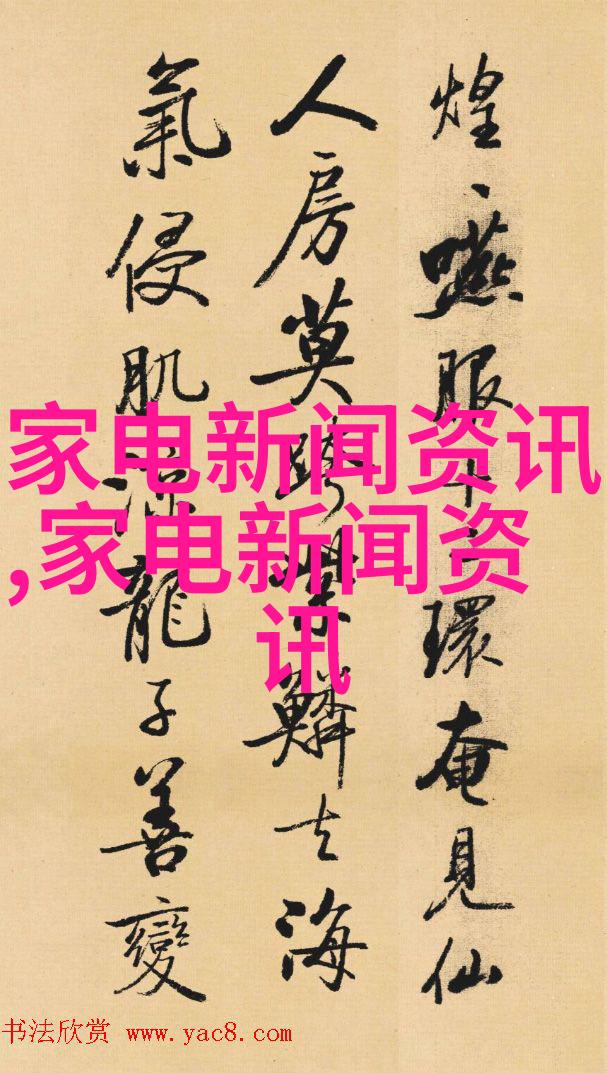 煌、嚥服十二環奄見仙
人房莫跨紫鱗去海
氣侵肌涼龍子善變
家电新闻资讯
,家电新闻资
讯
书法欣赏 www.yac8.com